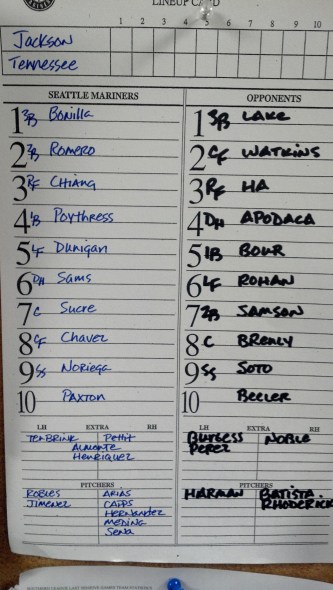 LINEUP CARD
1 2 3 4 5 6 7 8 9 10
Jackson
Tennessee
SEATTLE MARINERS
1 3B Bonilla
2 2B Romero
3 RF Chiang
4 1B Poythress
5 LF Dunigan
6 DH Sams
7 C Sucre
8 CF Chavez
9 SS Noriega
10 Paxton
LH EXTRA RH
TenBrink Pettit
Almonte
Henriquez
PITCHERS
Robles Arias
Jimenez Capps
Hernandez
Medina
Sena
OPPONENTS
1 3B LAKE
2 CF WATKINS
3 RF HA
4 DH APODACA
5 1B BOUR
6 LF ROHAN
7 2B SAMSON
8 C BRENLY
9 SS SOTO
10 BEELER
LH EXTRA RH
BURGESS NOBLE
PEREZ
PITCHERS
HARMAN BATISTA
RHODERICK